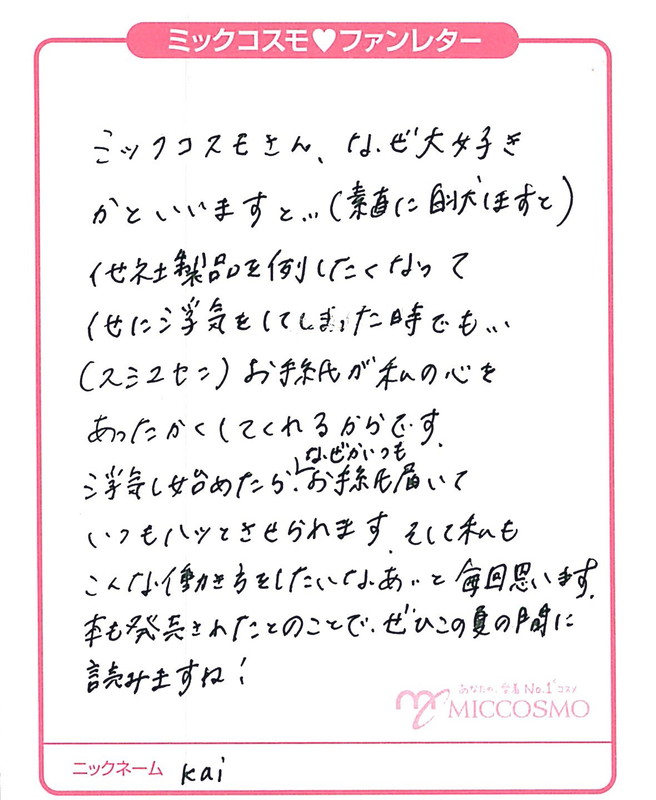 ミックコスモ♥ファンレター
ミックコスモさん、なぜ大好き
かといいますと…(素直に白状しますと)
他社製品を例したくなって
他に浮気をしてしまった時でも…
(スミマセン)お手紙が私の心を
あったかくしてくれるからです。
なぜかいつも
浮気し始めたら、お手紙届いて
いつもハッとさせられます。そして私も
こんな働き方をしたいなあ、と毎回思います。
本も発売されたとのことで、ぜひこの夏の間に
読みますね!
あなたの、定着No.1コスメ
MICCOSMO
ニックネーム kai